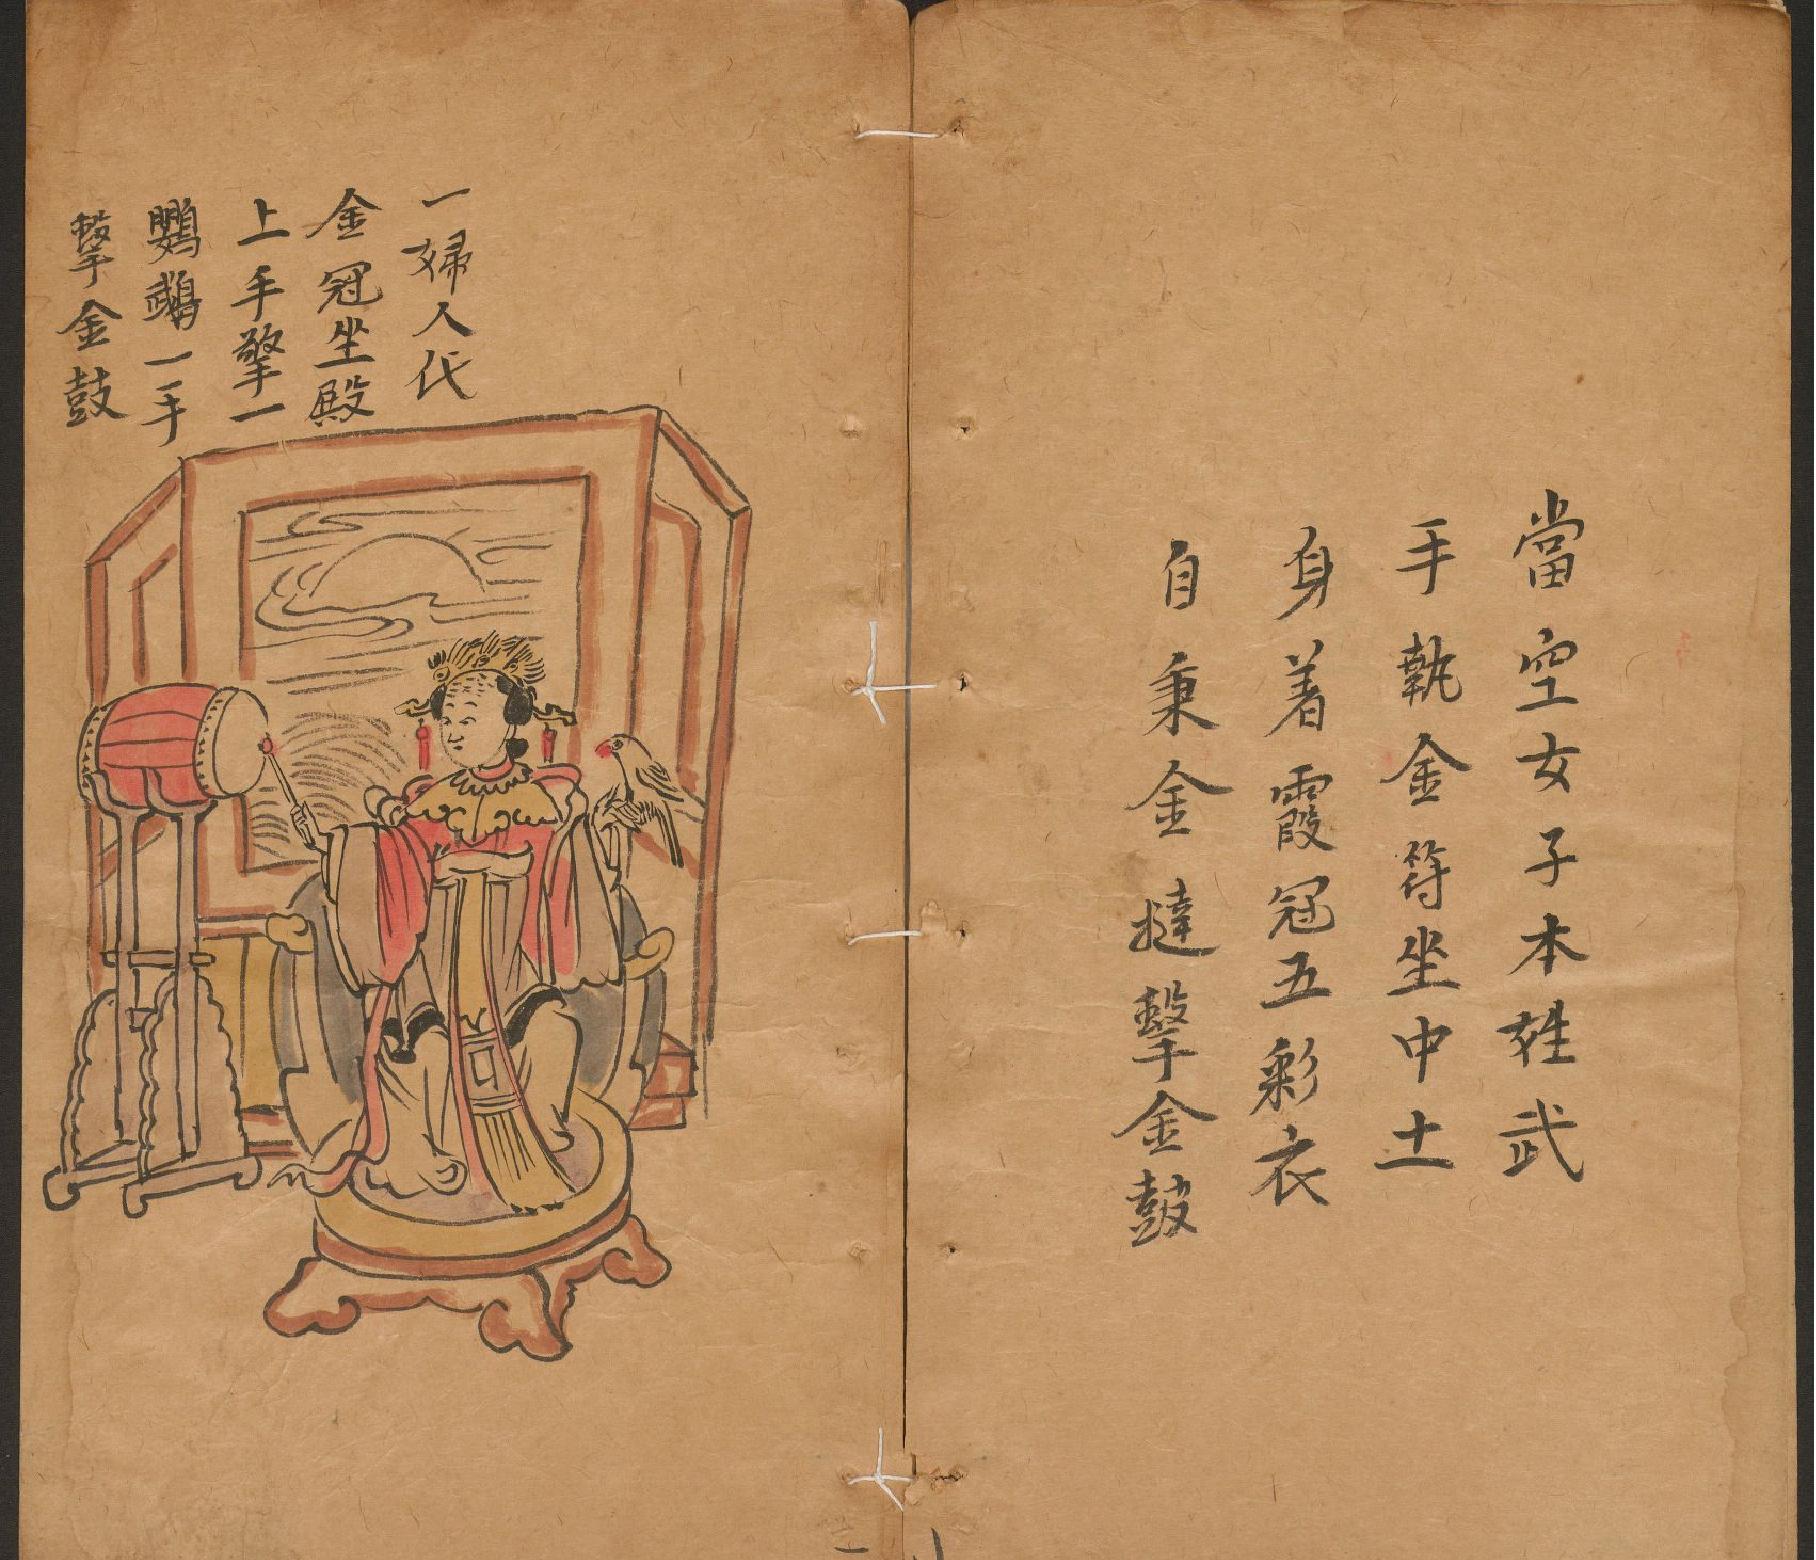 當空女子本姓武
手執金符坐中土
身着霞冠五彩衣
自秉金撻擊金鼓
一婦人代
金冠坐殿
上手擎一
鸚鵡一手
擊金鼓